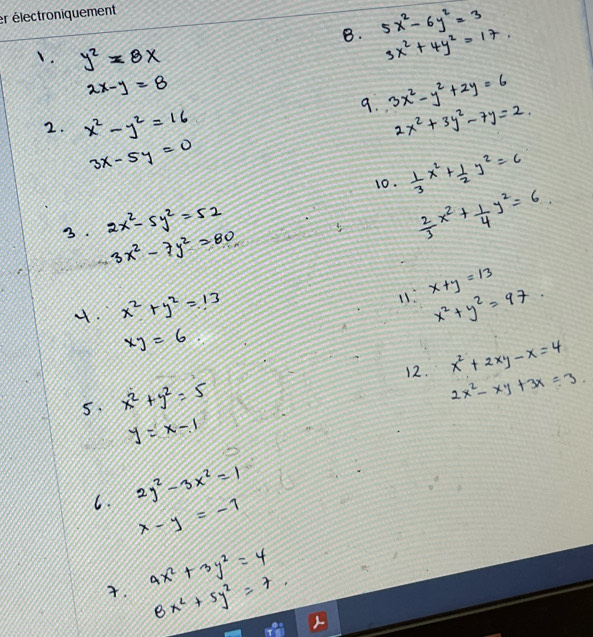 er électroniquement
1. y² = 8x
2x - y = 8
2. x² - y² = 16
3x - 5y = 0
3. 2x² - 5y² = 52
3x² - 7y² = 80
4. x² + y² = 13
xy = 6.
5. x² + y² = 5
y = x - 1
6. 2y² - 3x² = 1
x - y = -1
7. 9x² + 3y² = 4
8x² + 5y² = 7.
8. 5x² - 6y² = 3
3x² + 4y² = 17.
9. 3x² - y² + 2y = 6
2x² + 3y² - 7y = 2.
10. 1/3 x² + 1/2 y² = 6
2/3 x² + 1/4 y² = 6.
11. x + y = 13
x² + y² = 97.
12. x² + 2xy - x = 4
2x² - xy + 3x = 3.